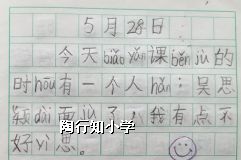 5月28日
今天biǎo yǎn课běn jù的
时hòu有一个人hǎn：吴思
颖dài面jù了，我有点不
好yì思。
陶行知小学